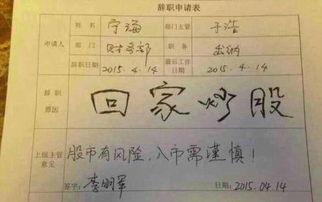 辞职申请表
姓名 宁海 部门主管 于浩
申请人 部门 财务部 职务 出纳
辞职日期 2015.4.14 最后工作日期 2015.4.14
辞职原因 回家炒股
上级主管意见 股市有风险,入市需谨慎!
签字: 李明军 日期: 2015.04.14